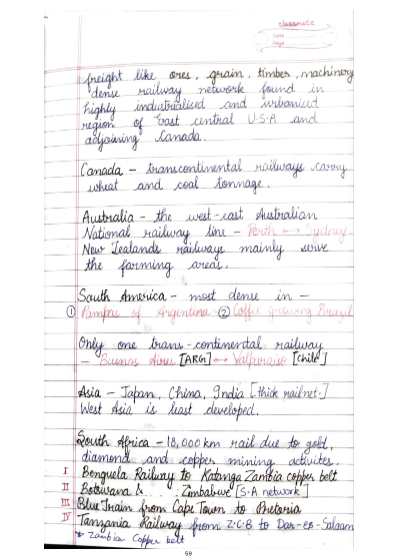 classmate
Date
Page
freight like ores, grain, timber, machinery
dense railway network found in
highly industrialised and urbanised
region of East central U.S.A and
adjoining Canada.
Canada - transcontinental railways carry
wheat and coal tonnage.
Australia - the west-east Australian
National railway line - Perth ↔ Sydney.
New Zealands railways mainly serve
the farming areas.
South America - most dense in -
① Pampas of Argentina ② Coffee growing Brazil
Only one trans-continental railway
- Buenos Aires [ARG] ↔ Valparaiso [Chile]
Asia - Japan, China, India [thick rail net.]
West Asia is least developed.
South Africa - 18,000 km rail due to gold,
diamond and copper mining activites.
I Benguela Railway to Katanga Zambia copper belt
II Botswana & . . . Zimbabwe [S.A network]
III Blue Train from Cape Town to Pretoria
IV Tanzania Railway from Z.C.B to Dar-es-Salaam
* Zambia Copper belt